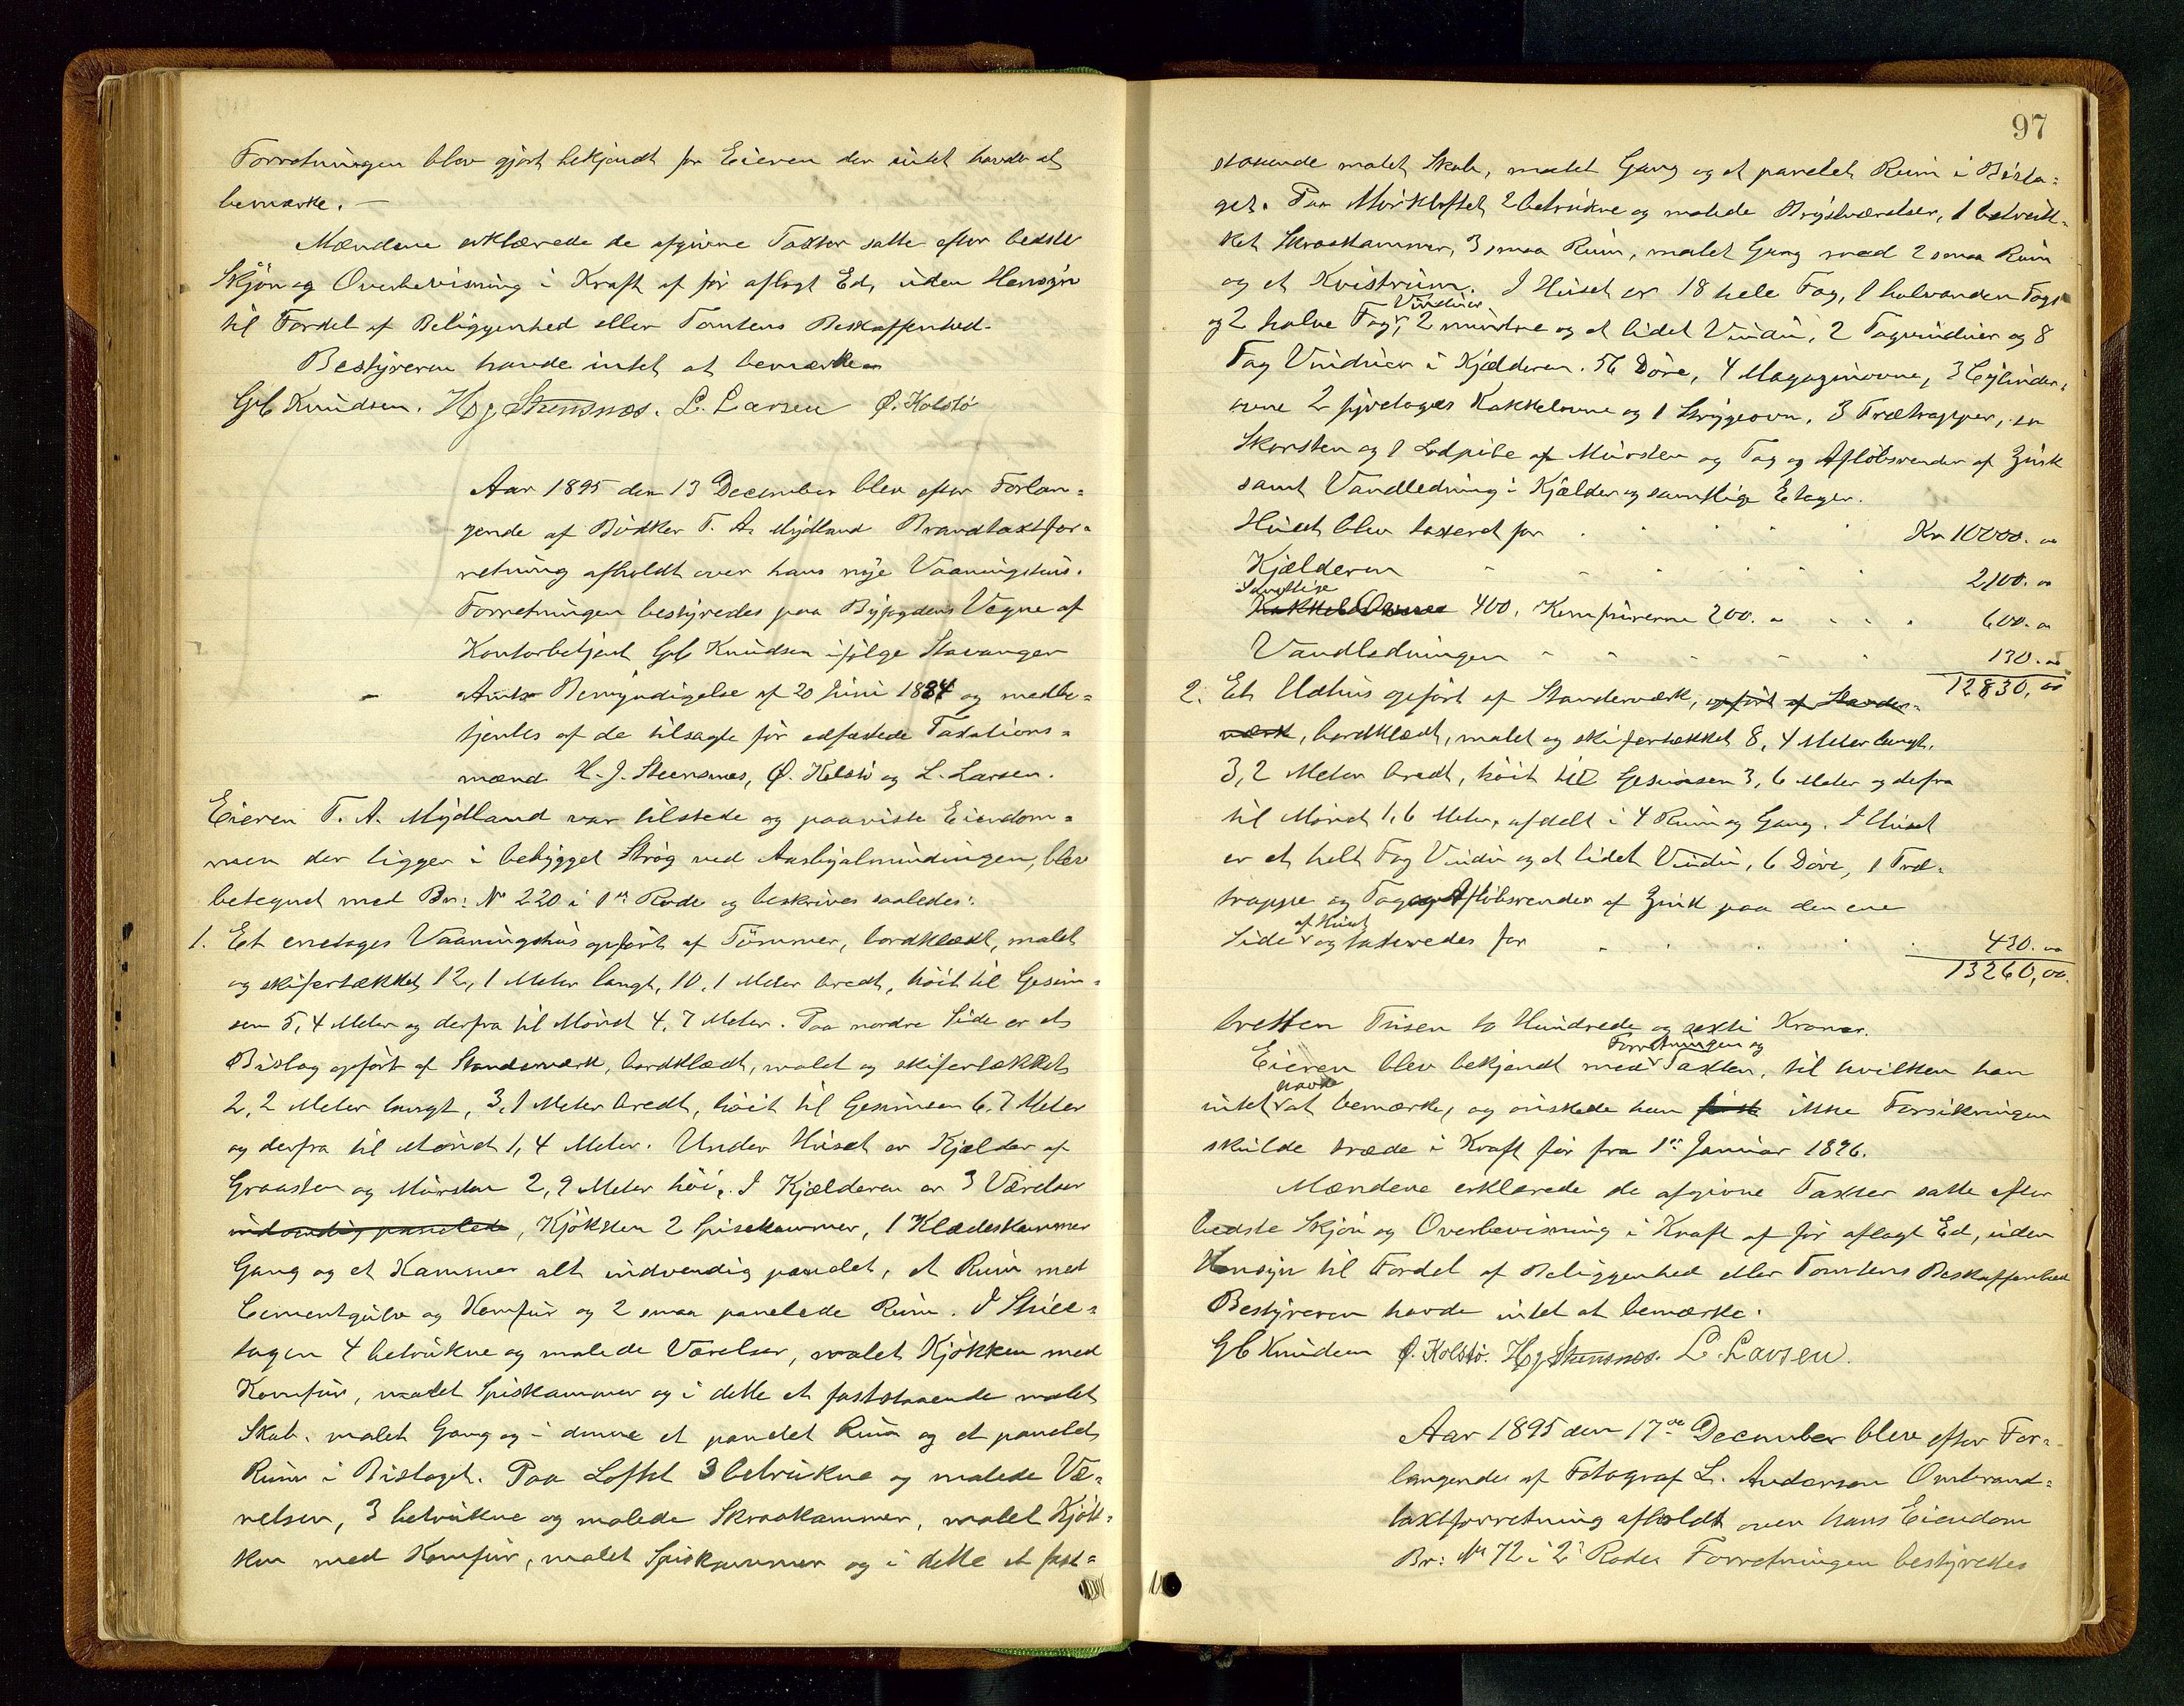 Forretningen blev gjort bekjendt for Eieren der intet havde at
bemærke. —
Mændene erklærede de afgivne Taxter satte efter bedste
Skjön og Overbevisning i Kraft af för aflagt Ed, uden Hensyn
til Fordel af Beliggenhed eller Tomtens Beskaffenhed.
Bestyreren havde intet at bemærke
G.C. Knudsen. H J Steensnæs. L. Larsen Ø. Kolstö
Aar 1895 den 13 December blev efter Forlan=
gende af Bödker T. A. Mydland Brandtaxtfor=
retning afholdt over hans nye Vaaningshus.
Forretningen bestyredes paa Byfogdens Vegne af
Kontorbetjent G.C. Knudsen ifølge Stavanger
Amts Bemyndigelse af 20 Juni 1884 og medbe=
tjentes af de tilsagte för edfæstede Taxations=
mænd H. J. Steensnæs, Ø. Kolstö og L. Larsen.
Eieren T. A. Mydland var tilstede og paaviste Eiendom=
men der ligger i bebygget Strög ved Aashjalmundingen, blev
betegnet med Br: No 220 i 1ste Rode og beskrives saaledes:
1. Et enetages Vaaningshus opfört af Tömmer, bordklædt, malet
og skifertækket 12,1 Meter langt, 10,1 Meter bredt, höit til Gesim=
sen 5,4 Meter og derfra til Mönet 4,7 Meter. Paa nordre Side er et
Bislag opfört af Standerværk, bordklædt, malet og skifertækket
2,2 Meter langt, 3,1 Meter bredt, höit til Gesimsen 6,7 Meter
og derfra til Mönet 1,4 Meter. Under Huset er Kjælder af
Graasten og Mursten 2,9 Meter höi. I Kjælderen er 3 Værelser
indvendig panelede, Kjökken 2 Spisekammer, 1 Klædeskammer
Gang og et Kammer alt indvendig panelet, et Rum med
Cementgulv og Komfur og 2 smaa panelede Rum. I Stuee=
tagen 4 betrukne og malede Værelser, malet Kjökken med
Komfur, malet Spiskammer og i dette et faststaaende malet
Skab, malet Gang og i denne et panelet Rum og et panelet
Rum i Bislaget. Paa Loftet 3 betrukne og malede Væ=
relser, 3 betrukne og malede Skraakammer, malet Kjök=
ken med Komfur, malet Spiskammer og i dette et fast=
97
staaende malet Skab, malet Gang og et panelet Rum i Bisla=
get. Paa Mörkloftet 2 betrukne og malede Brystværelser, 1 betruk=
ket Skraakammer, 3 smaa Rum, malet Gang med 2 smaa Rum
og et Kvistrum. I Huset er 18 hele Fag, 1 halvanden Fags
Vinduer
og 2 halve Fag, 2 mindre og et lidet Vindu, 2 Tagvinduer og 8
Fag Vinduer i Kjælderen. 56 Döre, 4 Magazinovne, 3 Cylinder=
ovne 2 fjretages Kakkelovne og 1 Strygeovn, 3 Trætrapper, en
Skorsten og 1 Lodpibe af Mursten og Tag og Aflöbsrender af Zink
samt Vandledning i Kjælder og samtlige Etager.
Huset blev taxeret for Kr 10000. 00
Kjælderen 2,100. 00
Samtlige
Kakkel Ovnes 400, Komfurerne 200. 600. 00
Vandledningen 130. 00
12830, 00
2. Et Udhus opfört af Standerværk, opfört af Stander=
værk, bordklædt, malet og skifertækket 8,4 Meter langt,
3,2 Meter bredt, höit til Gesimsen 3,6 Meter og derfra
til Mönet 1,6 Meter, afdelt i 4 Rum og Gang. I Huset
er et helt Fag Vindu og et lidet Vindu, 6 Döre, 1 Træ=
trappe og Tag og Aflöbsrender af Zink paa den ene
af Huset
Side og taxeredes for 430. 00
13260,00.
tretten Tusen to Hundrede og sexti Kroner.
Forretningen og
Eieren blev bekjendt med Taxten, til hvilken han
havde
intet at bemærke, og önskede han först ikke Forsikringen
skulde træde i Kraft för fra 1ste Januar 1896.
Mændene erklærede de afgivne Taxter satte efter
bedste Skjön og Overbevisning i Kraft af för aflagt Ed, uden
Hensyn til Fordel af Beliggenhed eller Tomtens Beskaffenhed
Bestyreren havde intet at bemærke.
G C Knudsen Ø. Kolstö. H J Steensnæs. L. Larsen.
Aar 1895 den 17de December blev efter For=
langendes af Fotograf L. Andersen Ombrand=
taxtforretning afholdt over hans Eiendom
Br: No 72 i 2 Rode. Forretningen bestyredes